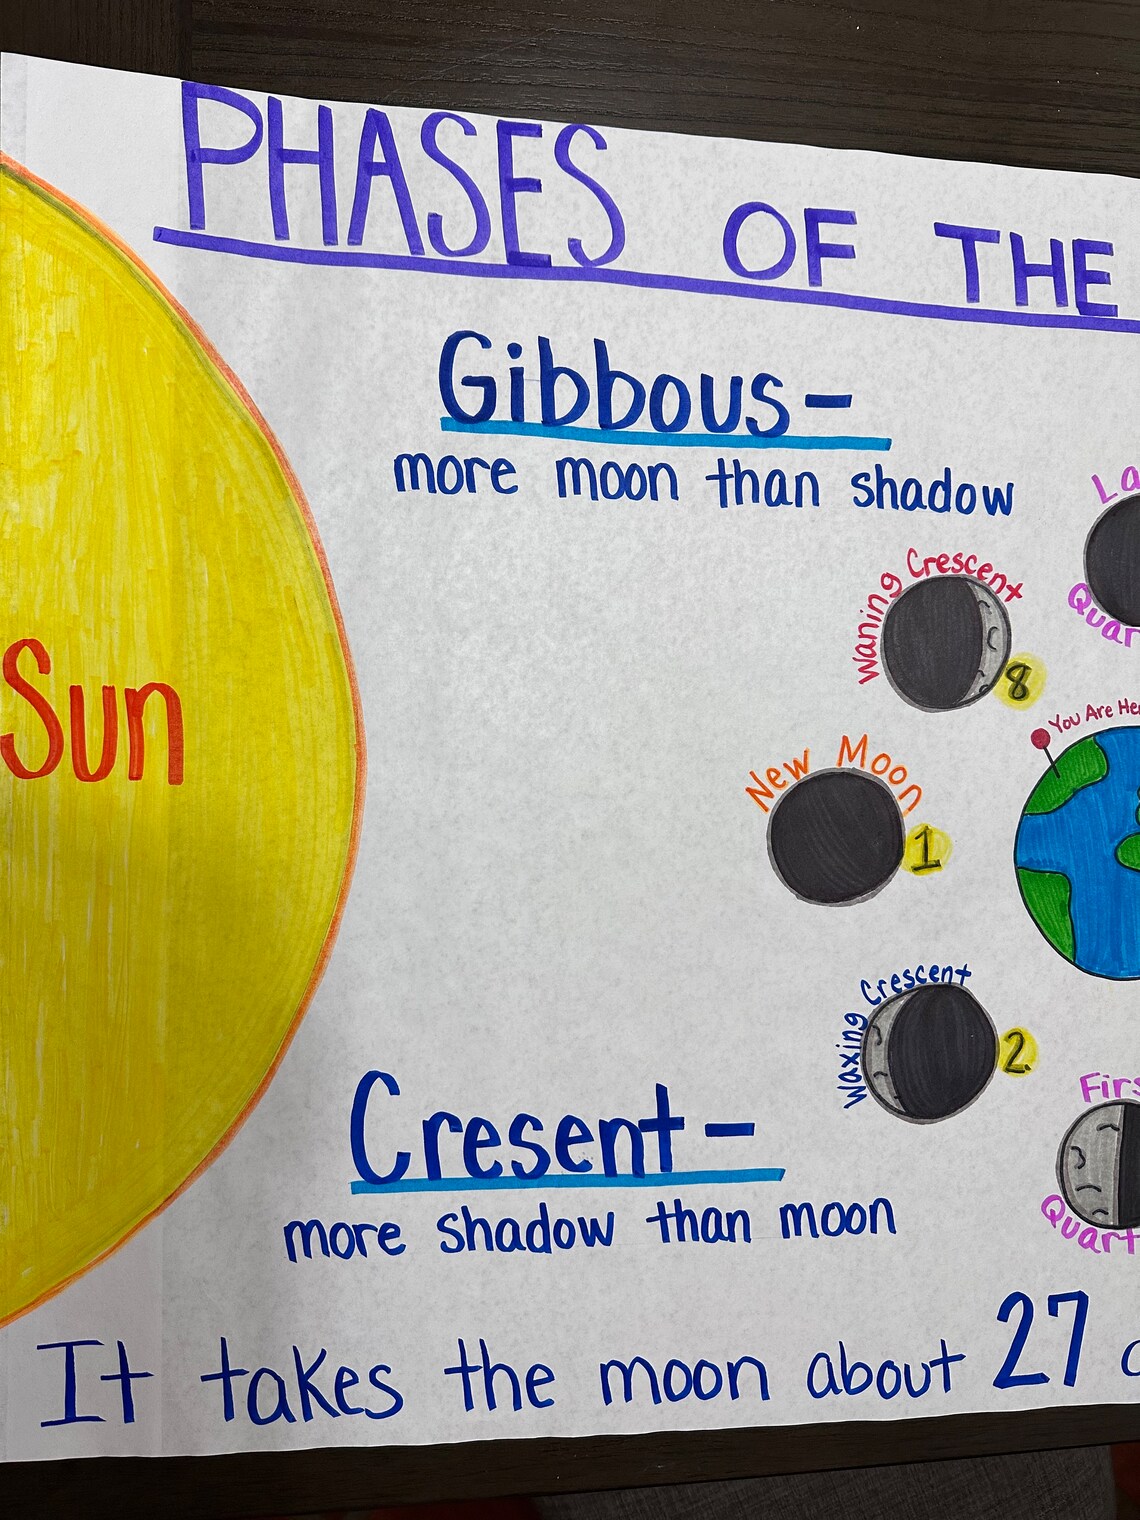 PHASES OF THE
Gibbous-
more moon than shadow
La
Quar
Waning Crescent
8
You Are Her
New Moon
1
Waxing Crescent
2.
Firs
Quart
Cresent-
more shadow than moon
It takes the moon about 27